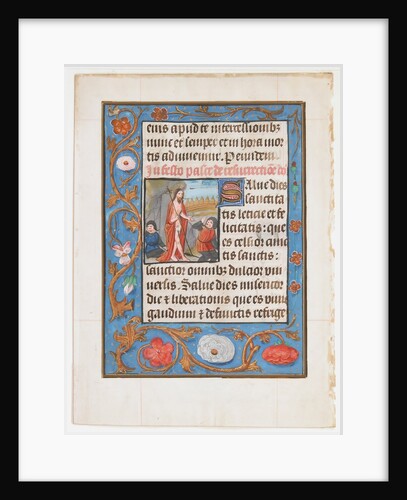 eius apud te intercessionibz
nunc et semper et in hora mor
tis adiuvemur. Per eundem
In festo pasce de resurrectione
Salve dies
sanctita
tis leticie et fe
licitatis: que
es celsior cunc
tis sanctis:
sanctior omnibz dulcior uni
versis. Salve dies misericor
die et liberationis que es vivis
gaudium et defunctis refrige